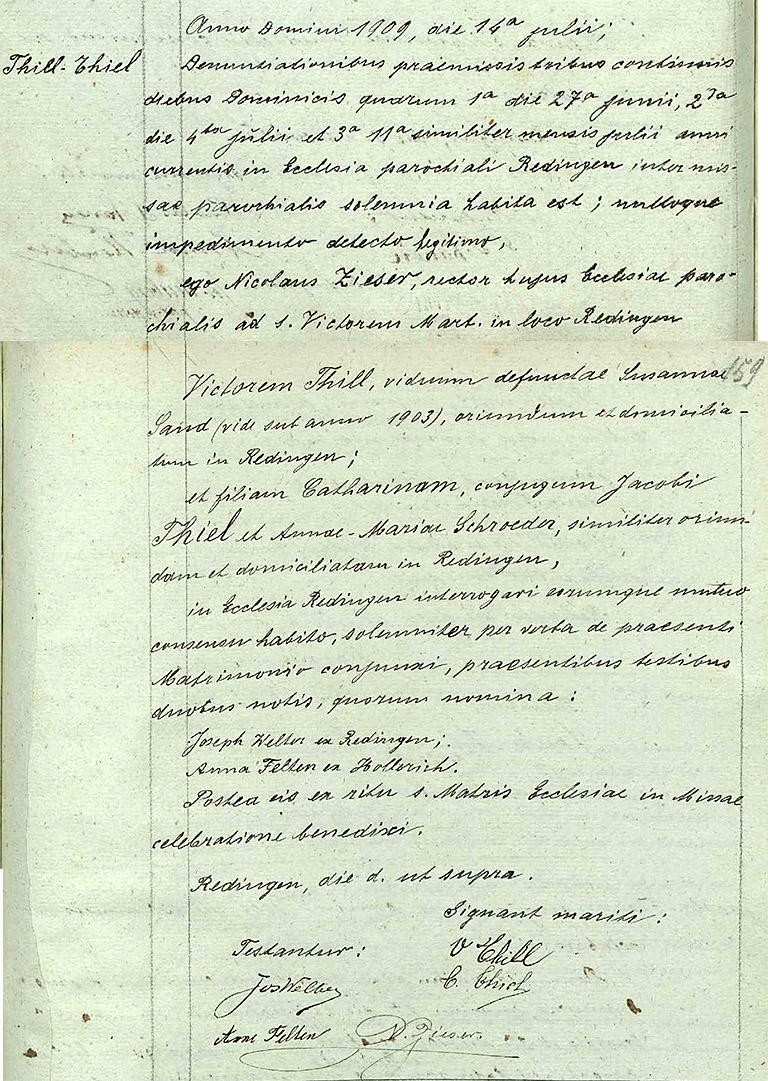 Anno Domini 1909, die 14a julii;
Thill-Thiel
Denuntiationibus praemissis tribus continuis
diebus Dominicis, quarum 1a die 27a junii, 2da
die 4ta julii et 3a 11a similiter mensis julii anni
currentis in Ecclesia parochiali Redingen inter mis-
sae parochialis solemnia habita est; nulloque
impedimento detecto legitimo,
ego Nicolaus Zieser, rector hujus Ecclesiae paro-
chialis ad s. Victorem Mart. in loco Redingen
159
Victorem Thill, viduum defunctae Susannae
Sand (vide sub anno 1903), oriundum et domicilia-
tum in Redingen;
et filiam Catharinam, conjugum Jacobi
Thiel et Annae-Mariae Schroeder, similiter oriun-
dam et domiciliatam in Redingen,
in Ecclesia Redingen interrogavi eorumque mutuo
consensu habito, solemniter per verba de praesenti
Matrimonio conjunxi, praesentibus testibus
duobus notis, quorum nomina:
Joseph Welter ex Redingen;
Anna Felten ex Hollerich.
Postea eis ex ritu s. Matris Ecclesiae in Missae
celebratione benedixi.
Redingen, die d. ut supra.
Signant mariti:
Testantur:
V Thill
C. Thiel
Jos Welter
Anne Felten
N. Zieser.